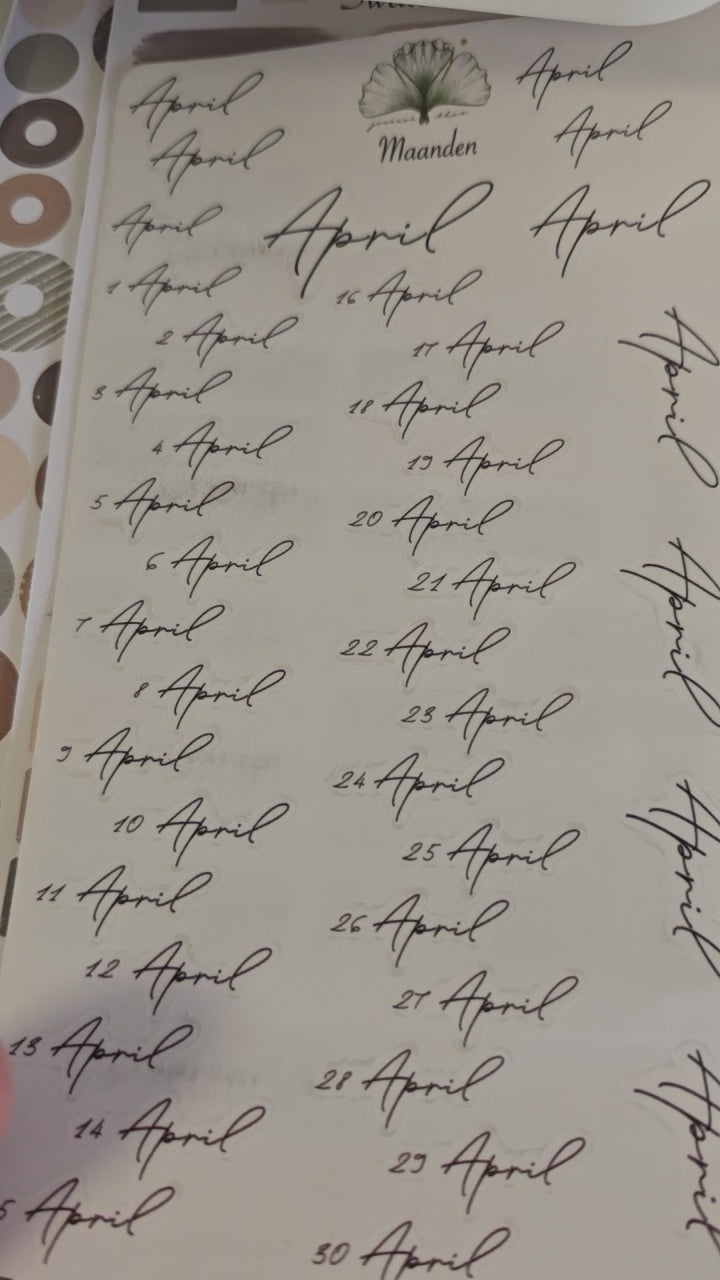 April
April
April
Maanden
April
April
April
April
1 April
2 April
3 April
4 April
5 April
6 April
7 April
8 April
9 April
10 April
11 April
12 April
13 April
14 April
5 April
16 April
17 April
18 April
19 April
20 April
21 April
22 April
23 April
24 April
25 April
26 April
27 April
28 April
29 April
30 April
April
April
April
April